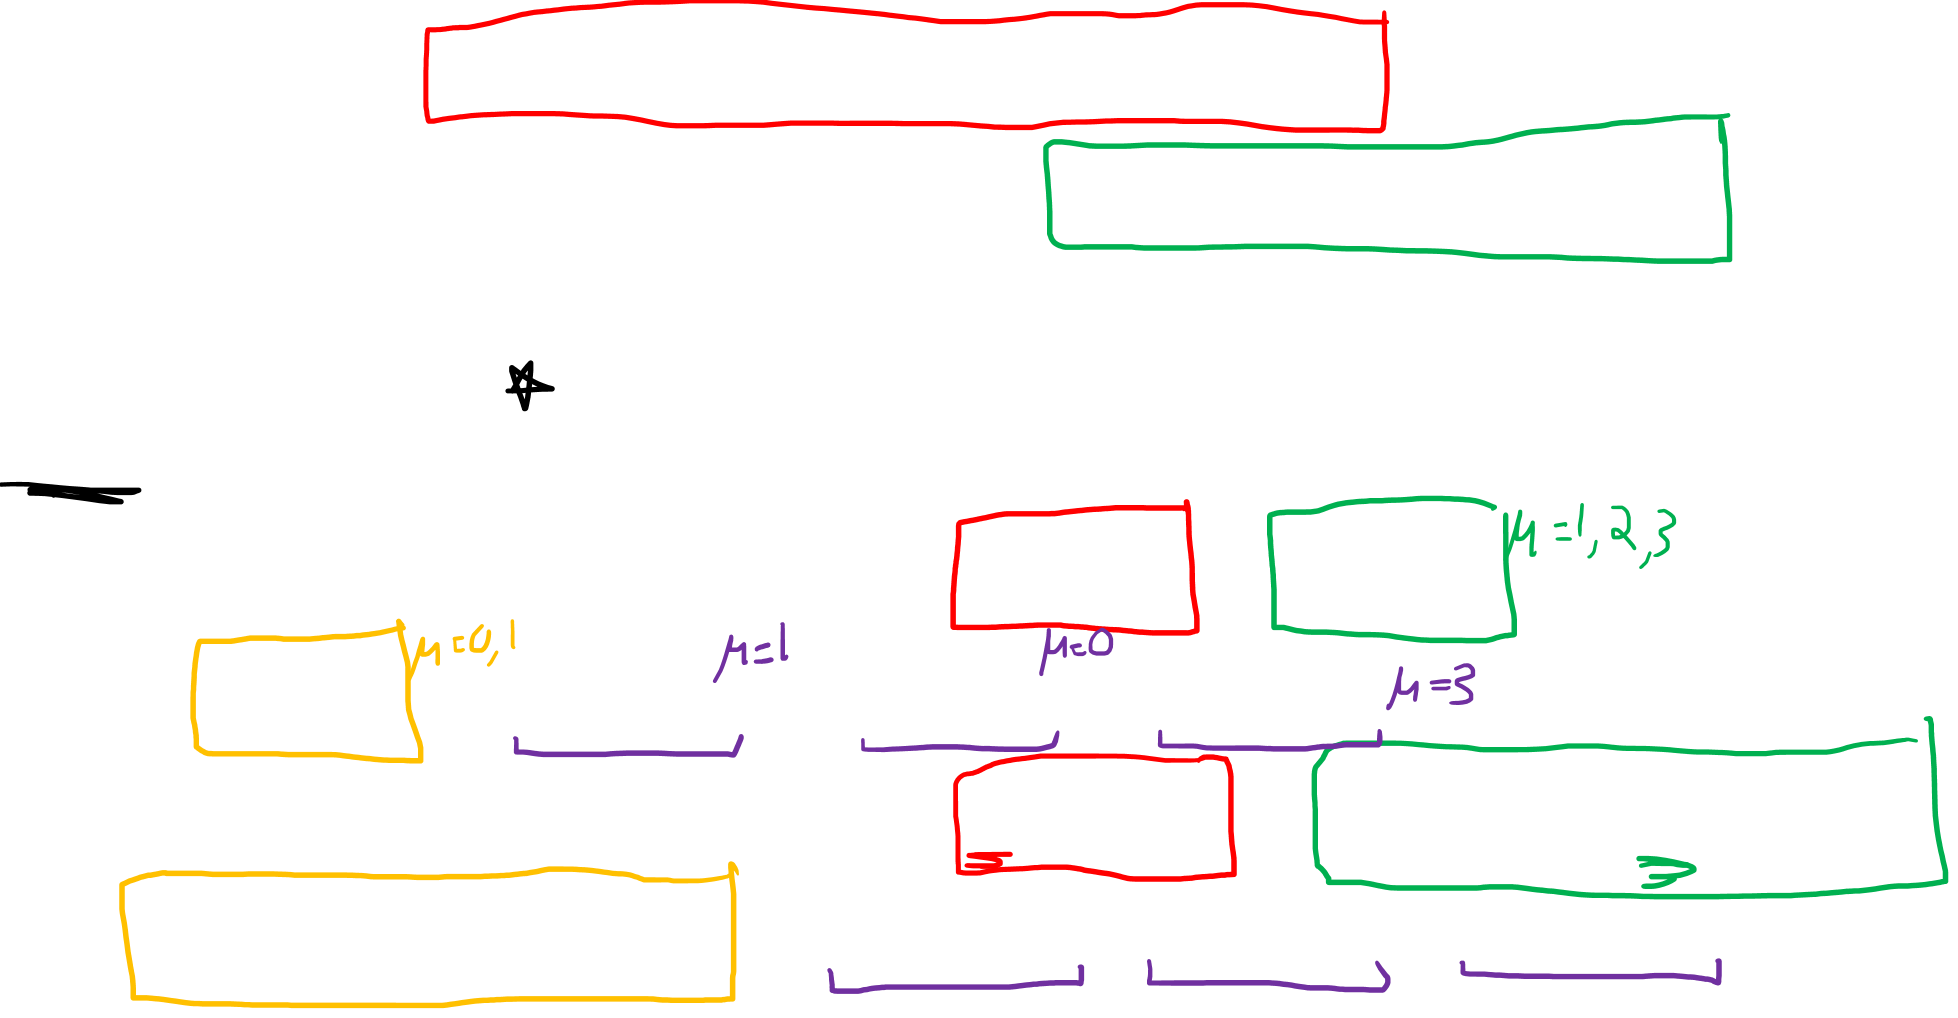 μ=1,2,3
μ=0,1
μ=1
μ=0
μ=3